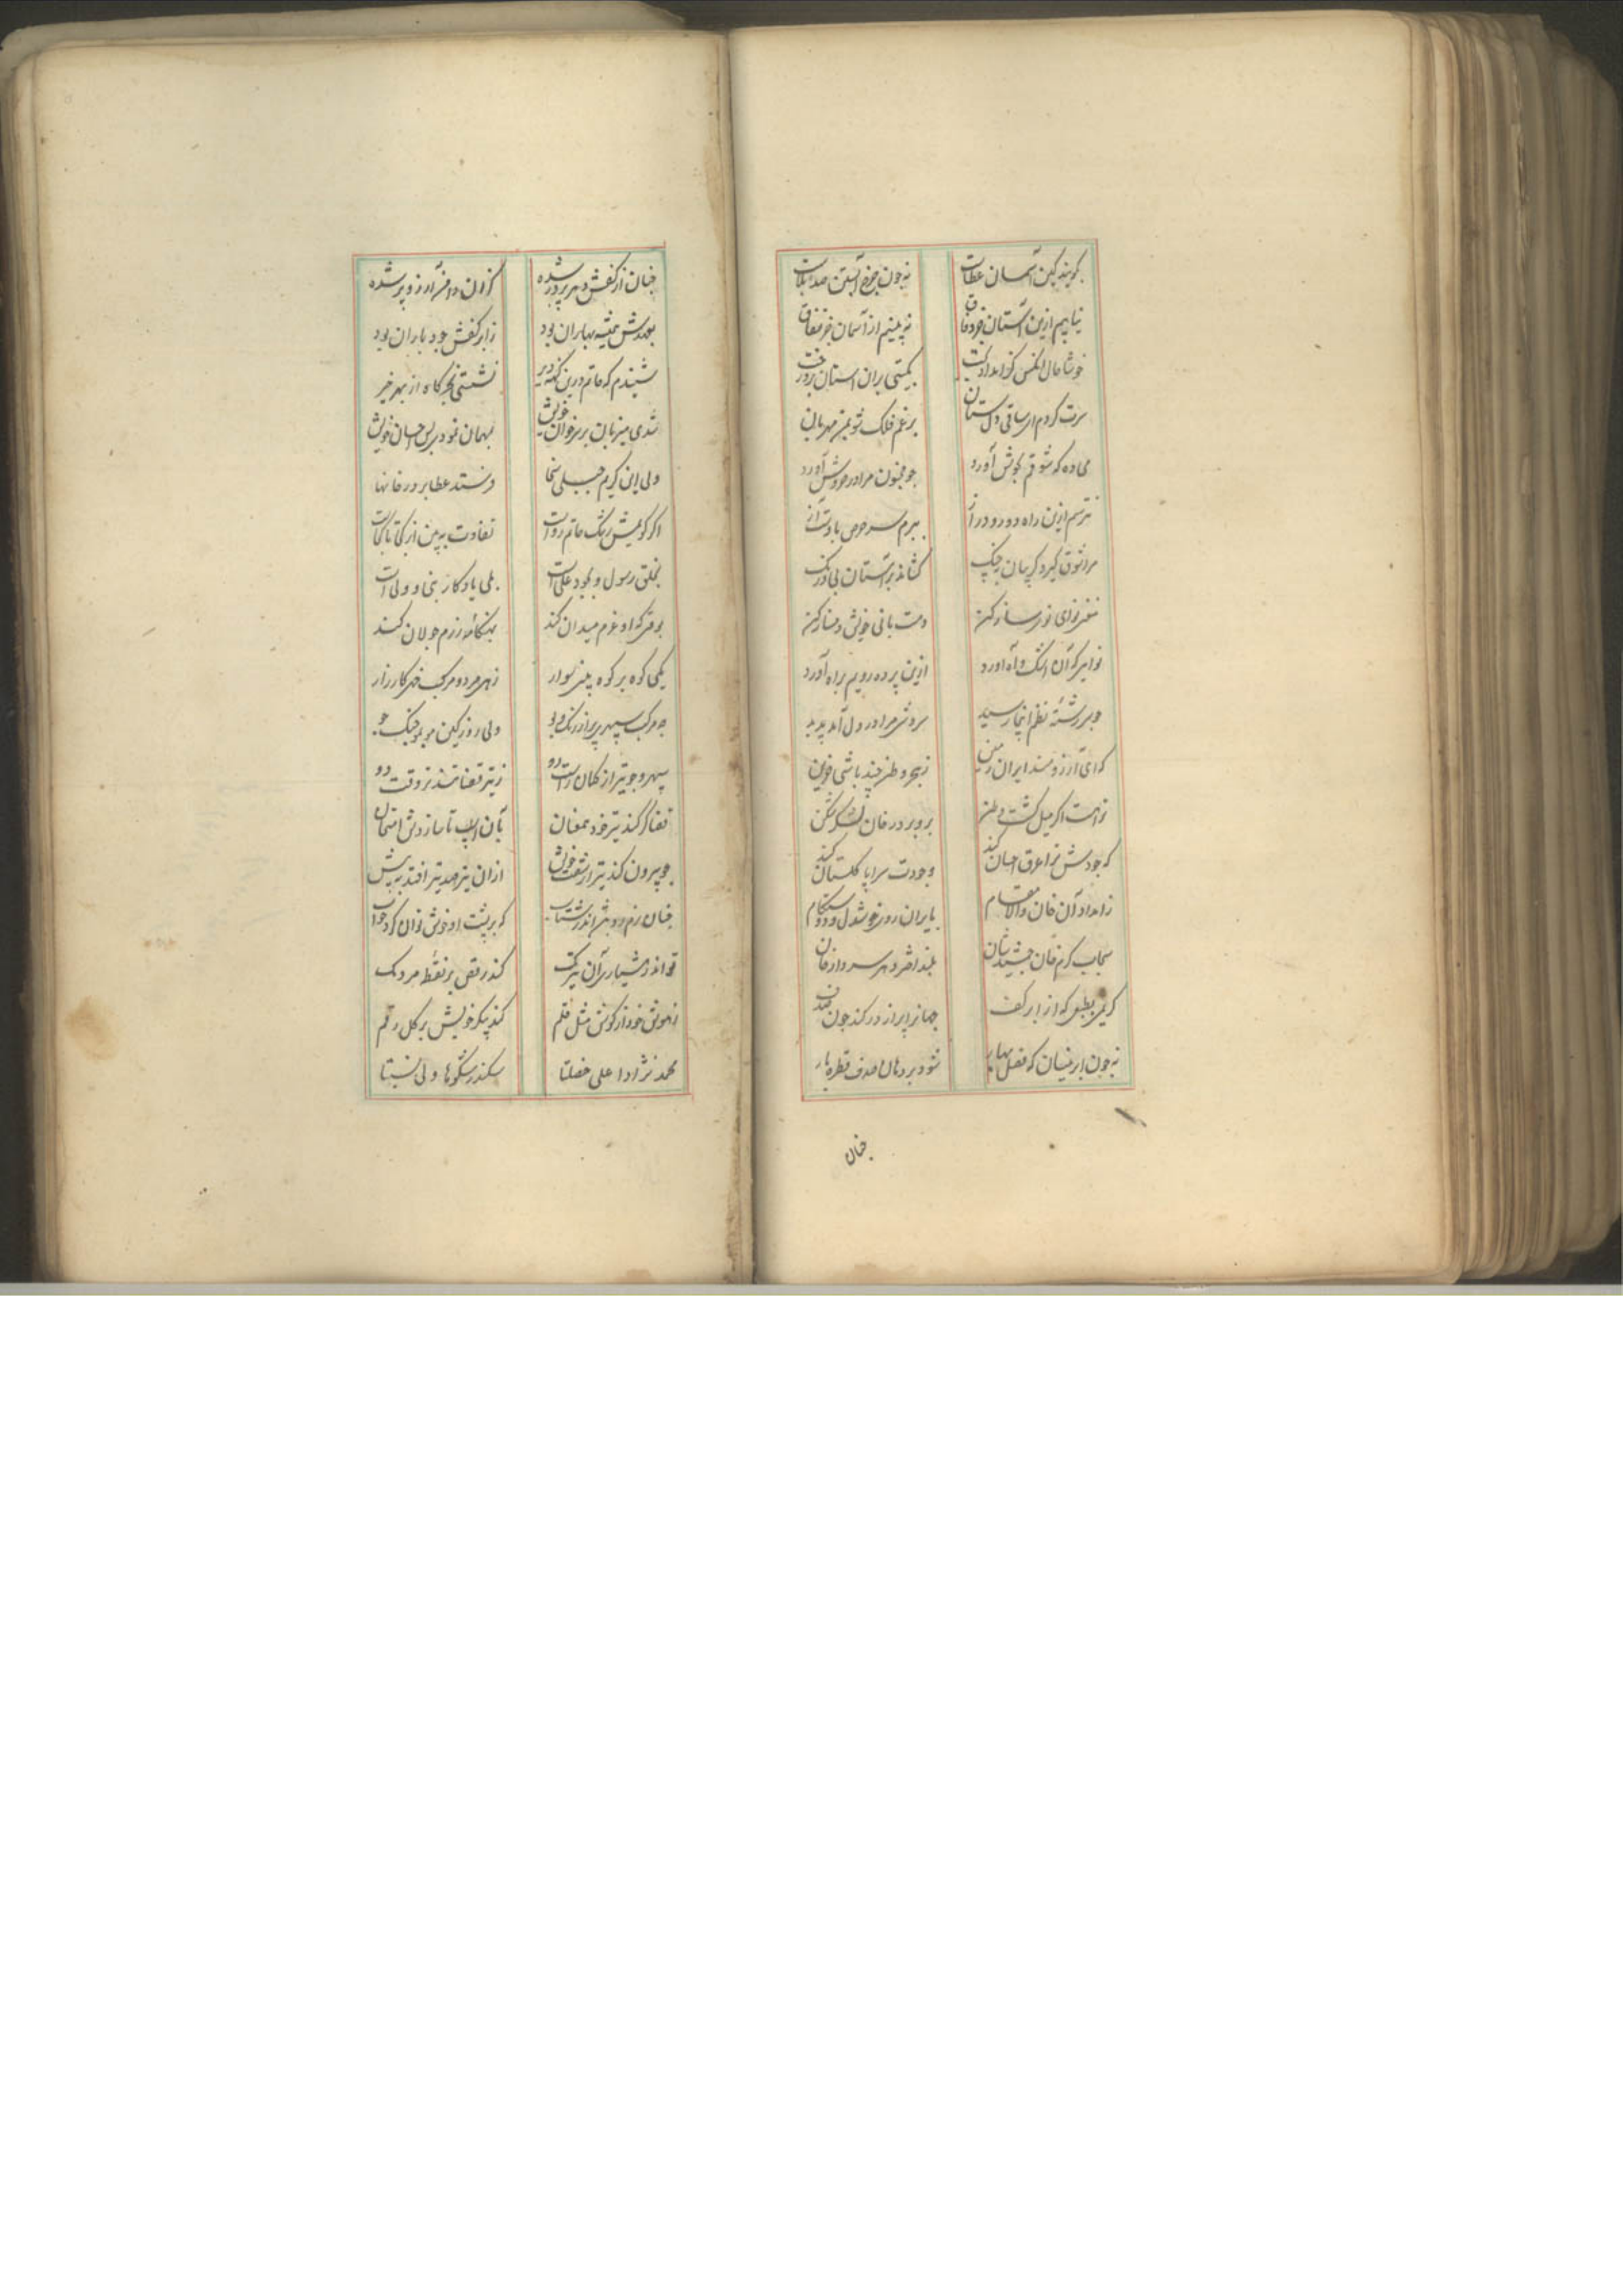 بگویند کین آسمان عطاست نه چون چرخ آبستن صد بلاست
نیابیم ازین آستان جز وفاق نه بینیم از آسمان جز نفاق
خوشا حال انکس کز امداد بخت بگیتی بران استان برد رخت
سرت کردم ای ساقی دلستان برغم فلک شو بمن مهربان
می ده که شوقم بجوش آورد چو مجنون مرا در خروش آورد
نترسم ازین راه دور و دراز ببرم سر حرص با دست آز
مرا شوق گیرد گریبان بچنگ کشاند بر آستان بی درنگ
مغنی نوای نوی ساز کن دست بانی خویش دمساز کن
نوایی که آن اشک و آه آورد ازین پرده رویم براه آورد
چو سررشته نظم اینجا رسید سروشی مرا در دل آمد پدید
که ای آرزومند ایران زمین ز هجر وطن چند باشی غمین
ترا هست اگر میل گشت وطن برو بر در خان لشکرشکن
که جودش ترا غرق احسان کند وجودت سراپا گلستان کند
ز امداد آن خان والا مقام بایران روی خوشدل و دوستکام
سحاب کرم خان جمشید شان بلند اختر دهر سرواز خان
کریمی بطبعی که از ابر کف جهانرا پر از در کند چون صدف
نه چون ابر نیسان که فصل بهار شود بر دهان صدف قطره بار
چنان
چنان از کفش دهر پر در شده کزان دامن آرزو پر شده
بعهدش همیشه بهاران بود ز ابر کفش جود باران بود
شنیدم که حاتم درین کهنه دیر نشستی بخرگاه از بهر خیر
شدی میزبان بر سر خوان خویش بمهمان نمودی بس احسان خویش
ولی این کریم جبلی سخا فرستد عطا بر در خانها
اگر گویمش رشک حاتم رواست تفاوت به بین از کجا تا کجاست
بخلق رسول و بجود علی است بلی یادگار نبی و ولی است
بوقتی که او عزم میدان کند بهنگامه رزم جولان کند
یکی کوه بر کوه بینی سوار زهی مرد و مرکب خهی کارزار
چه مرکب سپهری پر از رنگ و بو ولی روز کین مو بمو جنگ جو
سپهر و چو تیر از کمان راست رو ز تیر قضا تندتر وقت دو
قضا گر کند تیر خود همعنان بآن اسپ تا سازدش امتحان
چو بیرون کند تیر از شست خویش ازان تیر صد تیر افتد به پیش
چنان نرم رو وقت اندر شتاب که بر پشت او خوش توان کرد خواب
تواند ز هشیاری آن تیزتک کند رقص بر نقطه مردمک
ز هوش خود از گوش مثل قلم کند پیکر خویش بر گل رقم
محمد نژادا علی خصلتا سکندر شکوها ولی نسبتا